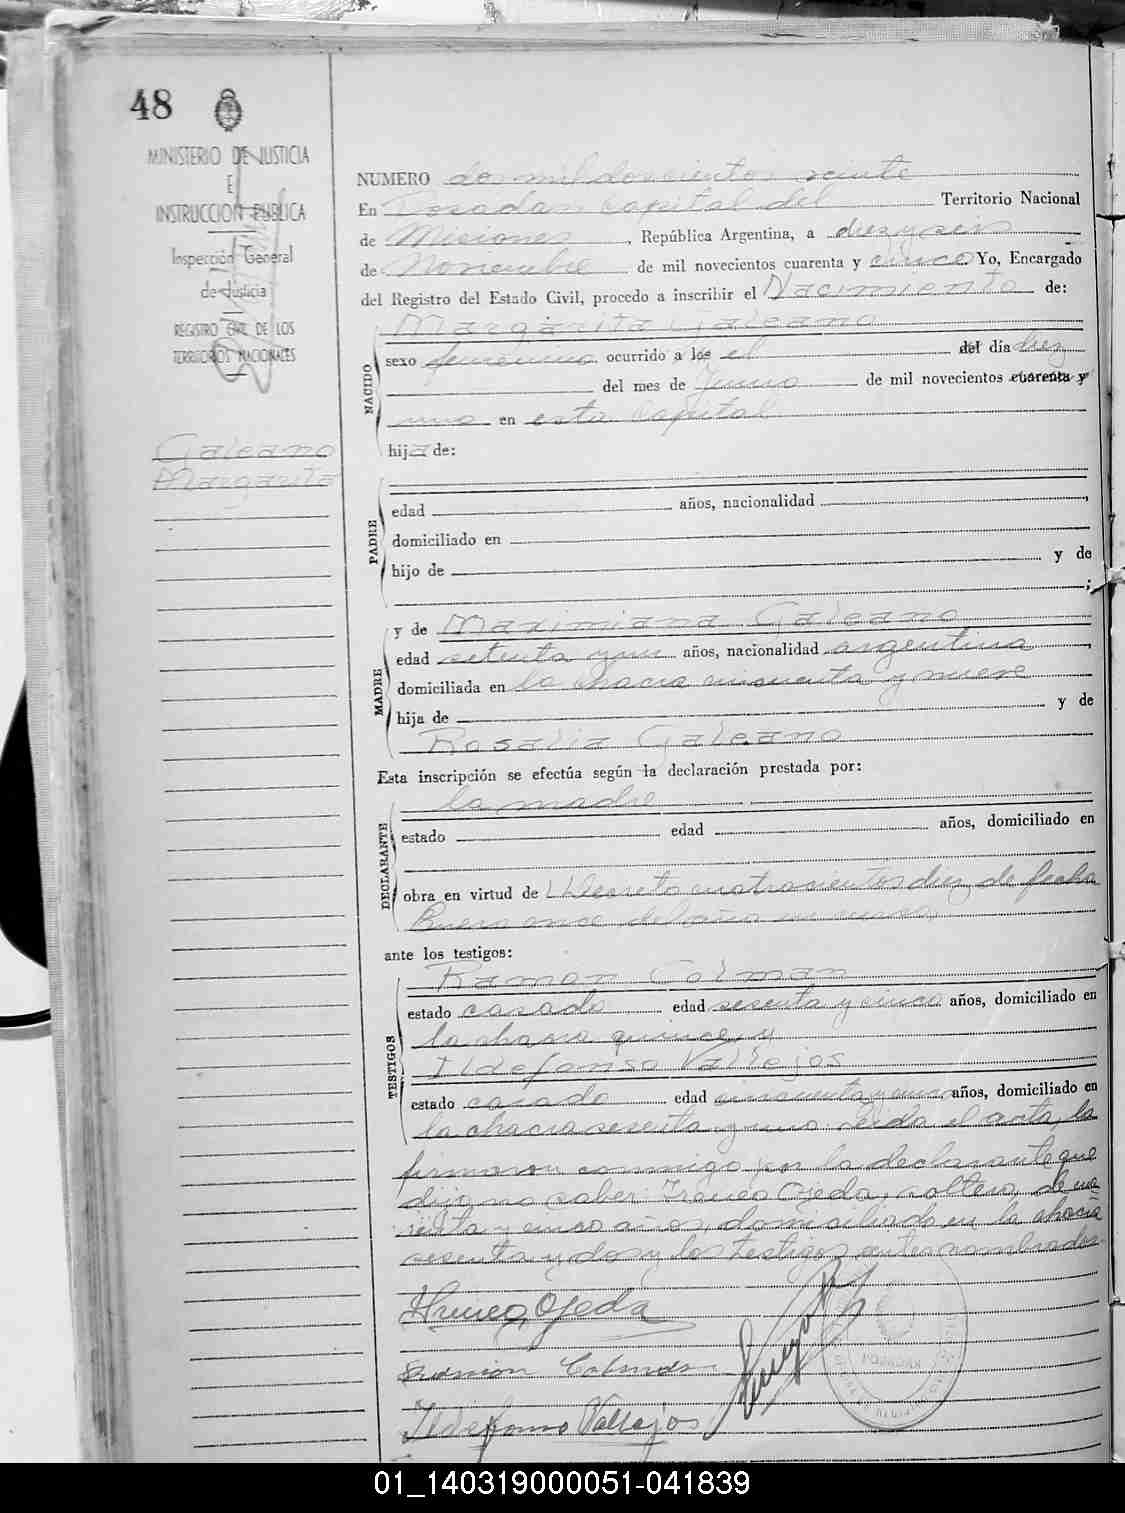 48
MINISTERIO DE JUSTICIA
E
INSTRUCCION PUBLICA
Inspección General
de Justicia
REGISTRO CIVIL DE LOS
TERRITORIOS NACIONALES
Galeano
Margarita
NUMERO dos mil doscientos veinte
En Posadas capital del Territorio Nacional
de Misiones, República Argentina, a diez y seis
de Noviembre de mil novecientos cuarenta y cinco Yo, Encargado
del Registro del Estado Civil, procedo a inscribir el Nacimiento de:
NACIDO
Margarita Galeano
sexo femenino ocurrido a los el del día diez
del mes de Junio de mil novecientos cuarenta y
uno en esta Capital
hija de:
PADRE
edad años, nacionalidad ,
domiciliado en
hijo de y de
;
MADRE
y de Maximiana Galeano
edad setenta y un años, nacionalidad argentina,
domiciliada en la chacra cincuenta y nueve
hija de y de
Rosalia Galeano
Esta inscripción se efectúa según la declaración prestada por:
DECLARANTE
la madre
estado edad años, domiciliado en
obra en virtud de Decreto cuatrocientos diez de fecha
Enero once del año en curso
ante los testigos:
TESTIGOS
Ramon Colman
estado casado edad sesenta y cinco años, domiciliado en
la chacra quince y
Ildefonso Vallejos
estado casado edad cincuenta y un años, domiciliado en
la chacra sesenta y uno. Leida el acta, la
firmaron conmigo por la declarante que
dijo no saber: Ireneo Ojeda, soltero, de
y cinco años, domiciliado en la chacra
sesenta y dos y los testigos antes nombrados.
Ireneo Ojeda
Ramon Colman
Ildefonso Vallejos
01_140319000051-041839